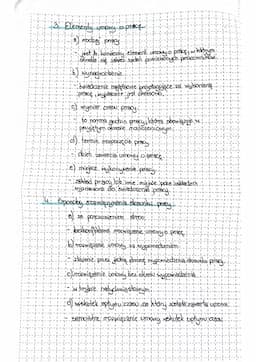 3. Elementy umowy o pracę
a) rodzaj pracy
- jest to konieczny element umowy o pracę, w którym
określa się zakres zadań powierzonych pracownikowi
b) wynagrodzenie
- świadczenie pieniężne przysługujące za wykonaną
pracę, wypłacane jest
c) wymiar czasu pracy
- to norma godzin pracy, która obowiązuje w
przyjętym okresie rozliczeniowym
d) termin rozpoczęcia pracy
- dzień zawarcia umowy o pracę
e) miejsce wykonywania pracy
- zakład pracy lub inne miejsce poza zakładem
wyznaczone do świadczenia pracy
4. Sposoby rozwiązywania stosunku pracy
a) za porozumieniem stron
- bezkonfliktowe rozwiązanie umowy o pracę
b) rozwiązanie umowy za wypowiedzeniem
- złożenie przez jedną stronę wypowiedzenia stosunku pracy
c) rozwiązanie umowy bez okresu wypowiedzenia
- w trybie natychmiastowym
d) wskutek upływu czasu na który została zawarta umowa
- samoistne rozwiązanie umowy wskutek upływu czasu